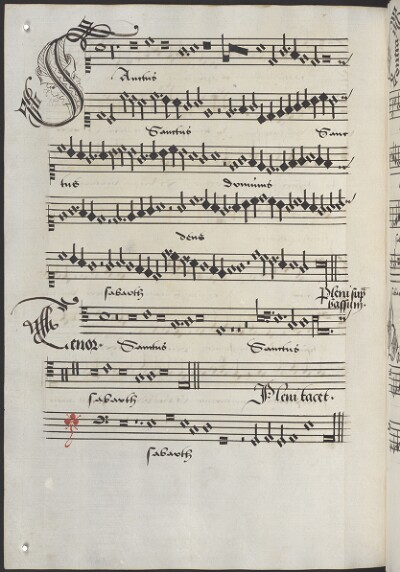 SAnctus
Sanctus Sanc
tus dominus
deus
sabaoth
Pleni sup
bassum.
Tenor. Sanctus Sanctus
sabaoth Pleni tacet.
sabaoth